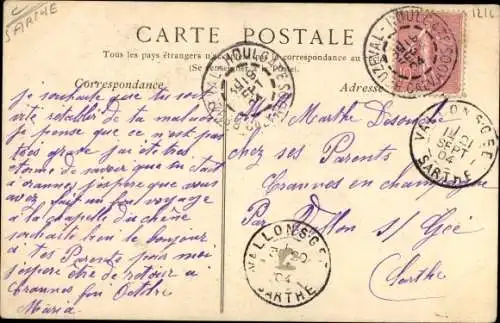 SARTHE
1216
CARTE POSTALE
Tous les pays étrangers n'acceptent pas la correspondance au
(Se renseigner
Correspondance
Adresse
je souhaite que tu sois
vite rétablie de ta maladie
je pense que ce n'est pas
très grave j'ai été très
étonné de savoir que tu étais
à Crannes j'espère que vous
avez fait un bon voyage
à la chapelle du chêne
souhaite bien le bonjour
à tes Parents pour moi
j'espère être de retour à
Crannes fin Octobre
Maria
Marthe
chez ses Parents
Crannes en champagne
Par Vallon s/ Gée
Sarthe
HOULGATE
VALLON S GÉE
SARTHE
VALLON S GÉE
04
SARTHE